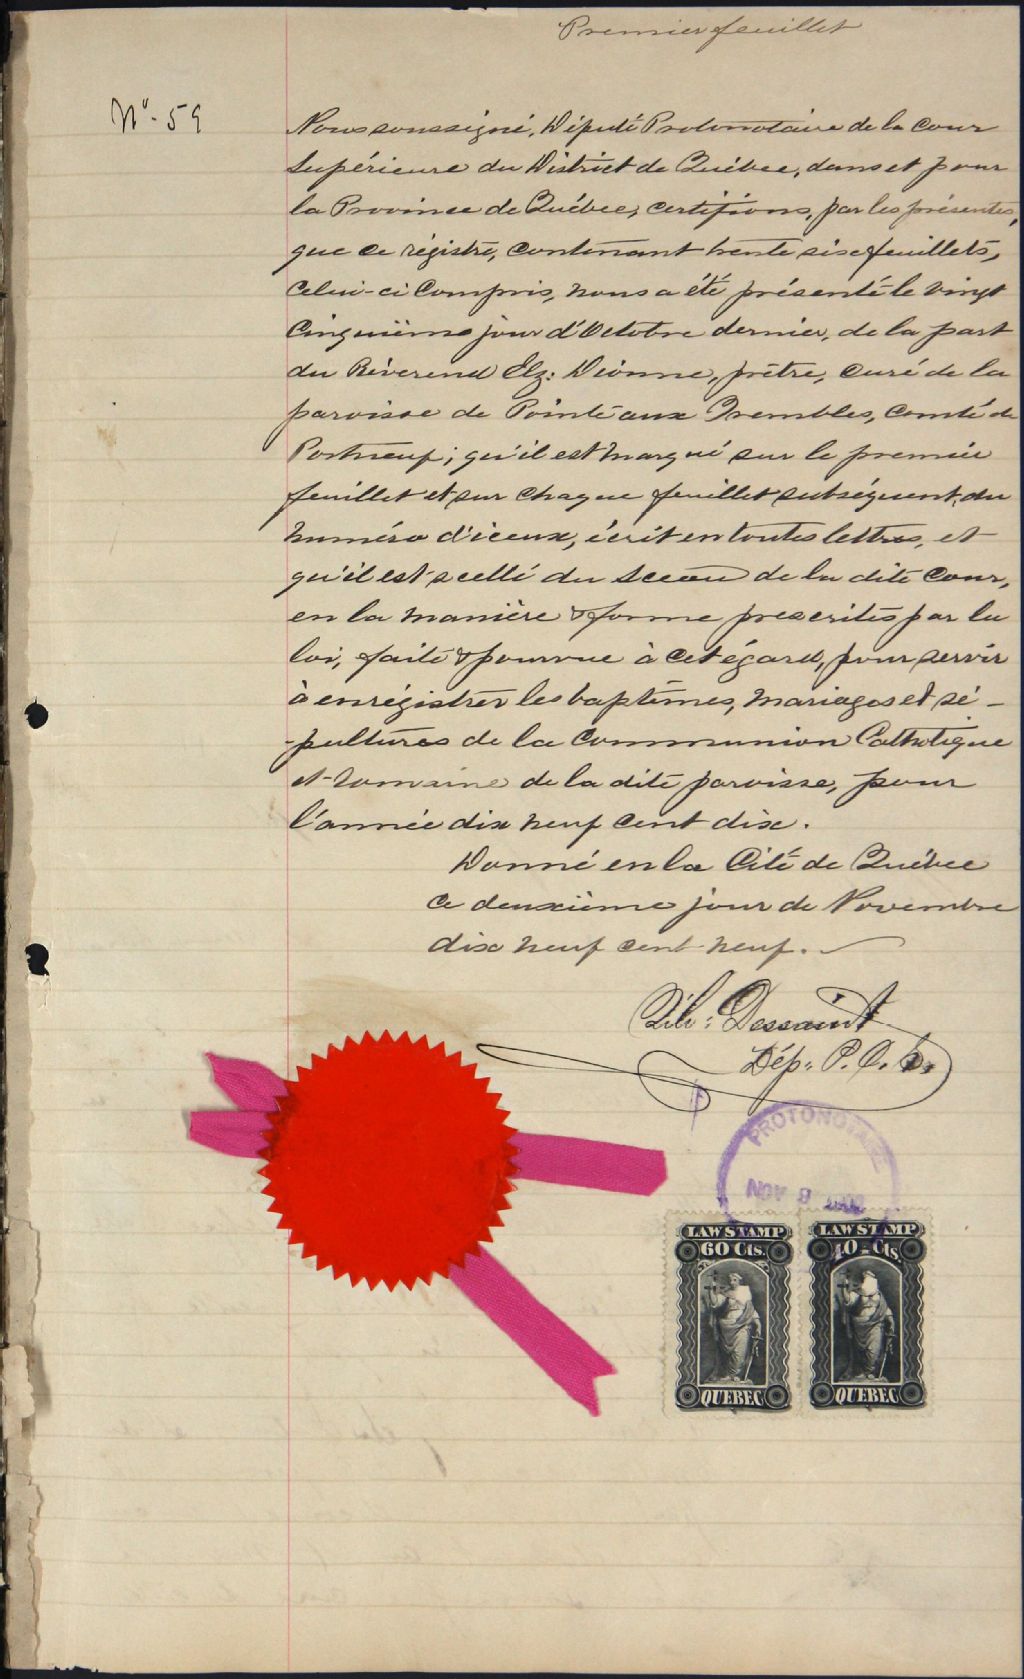 Premier feuillet
No. 59
Nous soussigné, Député Protonotaire de la Cour
Supérieure du District de Québec, dans et pour
la Province de Québec, certifions, par les présentes,
que ce régistre, contenant trente six feuillets,
celui-ci compris, nous a été présenté le vingt
cinquième jour d'Octobre dernier, de la part
du Révérend Elz: Dionne, prêtre, curé de la
paroisse de Pointe aux Trembles, comté de
Portneuf; qu'il est marqué sur le premier
feuillet et sur chaque feuillet subséquent, du
numéro d'iceux, écrit en toutes lettres, et
qu'il est scellé du sceau de la dite Cour,
en la manière & forme prescrites par la
loi, faite & pourvue à cet égard, pour servir
à enrégistrer les baptêmes, mariages et sé-
-pultures de la Communion Catholique
et romaine de la dite paroisse, pour
l'année dix neuf cent dix.
Donné en la Cité de Québec
ce deuxième jour de Novembre
dix neuf cent neuf.
Dessaint
Dép: P. C. S.
PROTONOTAIRE
NOV 8
LAW STAMP LAW STAMP
60 Cts. 40-Cts.
QUEBEC QUEBEC